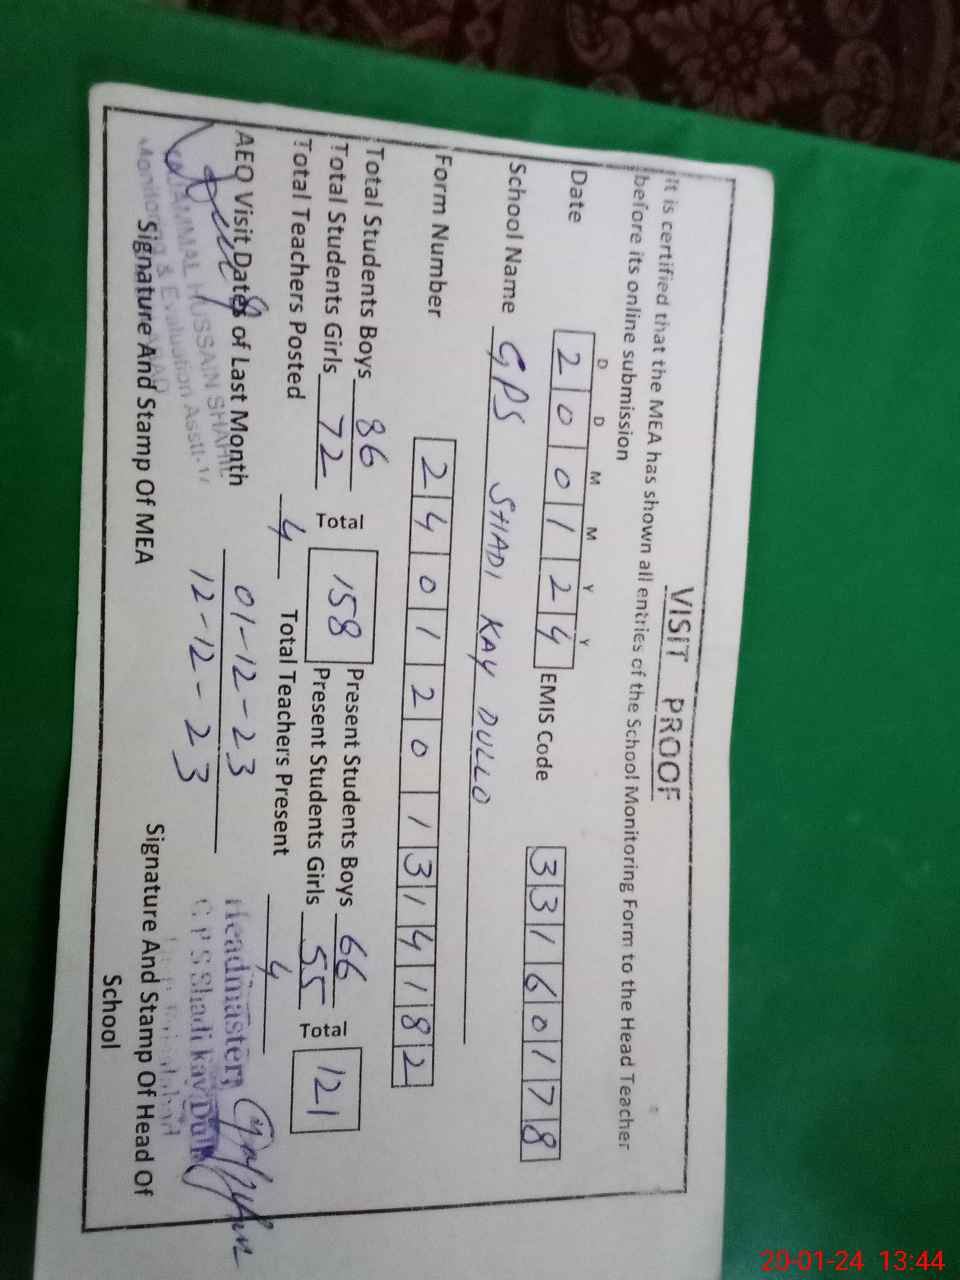 VISIT PROOF
It is certified that the MEA has shown all entries of the School Monitoring Form to the Head Teacher
before its online submission
D D M M Y Y
Date 2 0 0 1 2 4 EMIS Code 3 3 1 6 0 1 7 8
School Name GPS SHADI KAY DULLO
Form Number 2 4 0 1 2 0 1 3 1 4 1 8 2
Total Students Boys 86 Total 158 Present Students Boys 66 Total 121
Total Students Girls 72 Present Students Girls 55
Total Teachers Posted 4 Total Teachers Present 4
AEO Visit Dates of Last Month 01-12-23
12-12-23
HUSSAIN
Monitoring & Evaluation Asstt-
Headmaster,
G P S Shadi kay Dullo
Signature And Stamp Of MEA Signature And Stamp Of Head Of
School
20-01-24 13:44